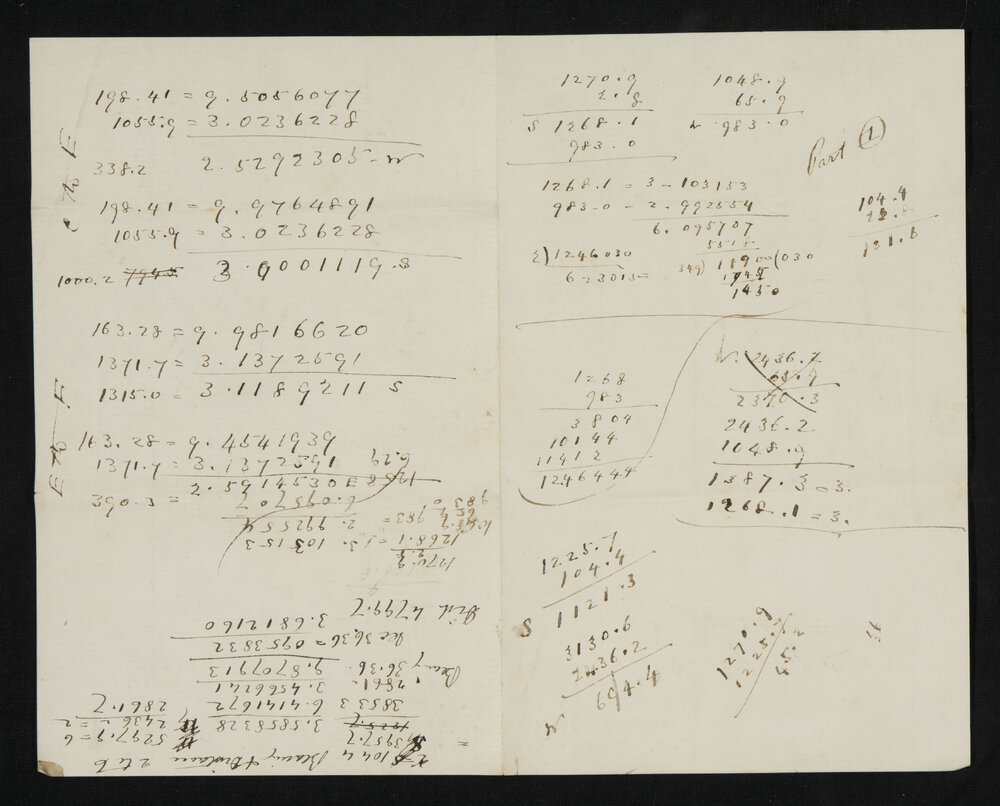 198.41 = 9.5056077
1055.9 = 3.0236228
338.2 2.5292305 - N
198.41 = 9.9764891
1055.9 = 3.0236228
1000.2 3.0001119.8
163.28 = 9.9816620
1371.7 = 3.1372591
1315.0 = 3.1189211 S
163.28 = 9.4541939
1371.7 = 3.1372591
390.3 = 2.5914530 E
6.095707
983 = 2.992554
1268.1 = 3.103153
1270.9
Dist 4799.7
3.6812160
Sec 36.36 = 0953832
Bearing 36.36. 9.8707913
2861. 3.4566241
3853 3 6.4141672 2861.7
3957.7 3.5858328 2436.2 = 2
5297.9 = 6
104.4 Bearing & Distance 2 to 6
1270.9 1048.9
2.8 65.9
S 1268.1 N 983.0
983.0
Part 1
1268.1 = 3-103153
983-0 - 2.992554
6.095707
2)1246030
623015=
349) 11900(030
1450
104.4
131.6
1268
983
3804
10144
11412
1246444
N. 2436.7
65.9
2370.3
2436.2.
1048.9
1387.3=3.
1268.1=3.
1225.7
104.4
S 1121.3
3130.6
2436.2
N 694.4
1270.9
1225.7
45.2